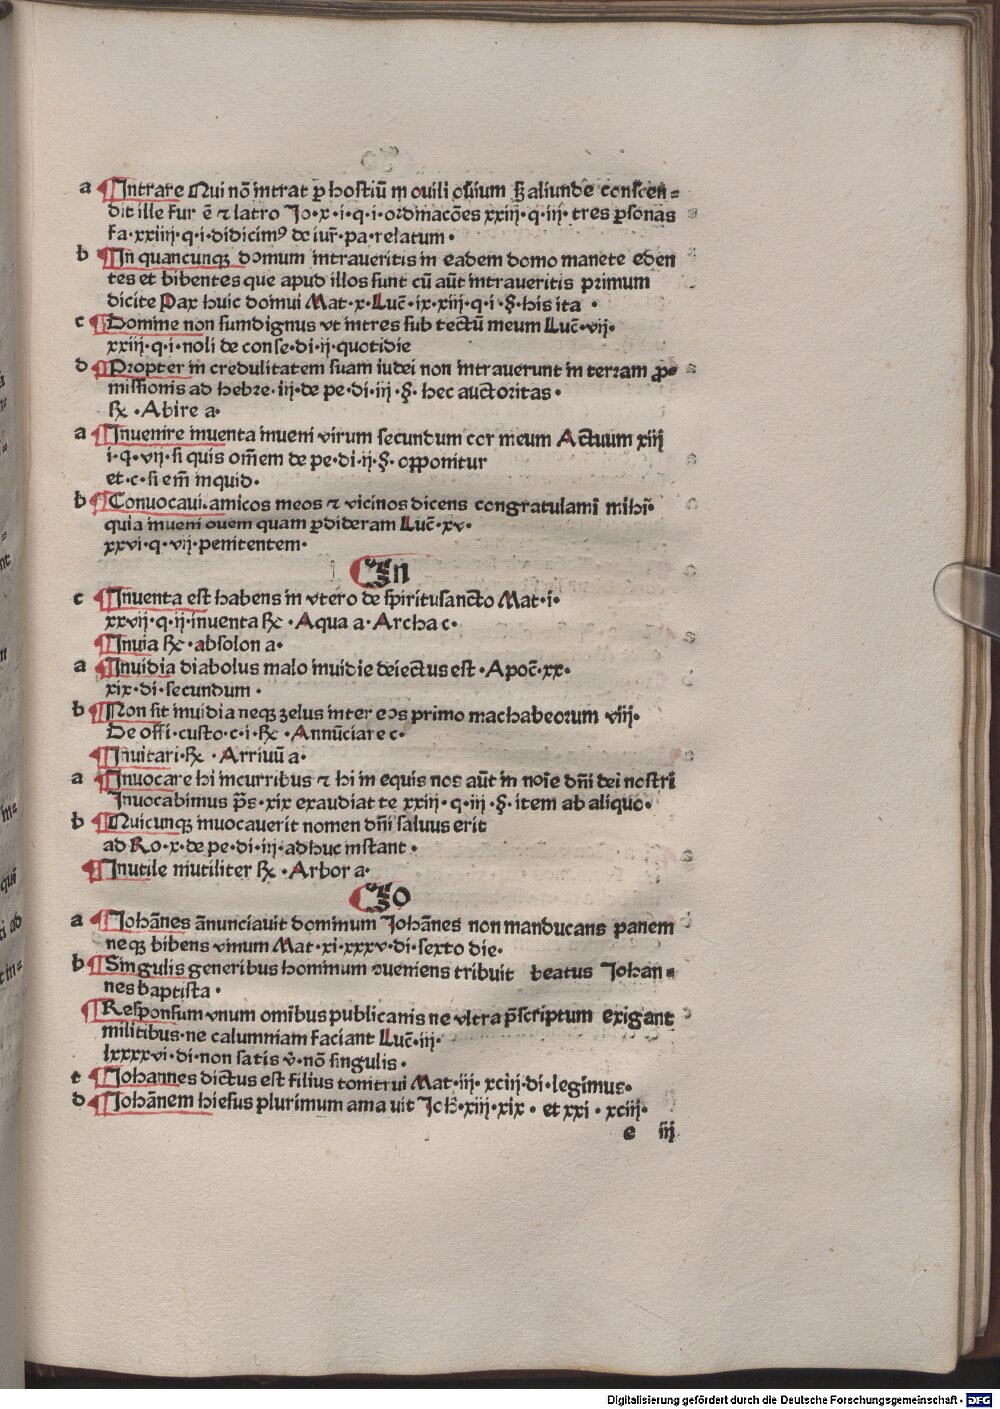 a ¶Intrare Qui nō intrat ꝑ hostiū in ouili ouium ꝫ aliunde conscen=
dit ille fur ē ⁊ latro Jo·x·i·q·i·ordinacōes xxiij·q·iij·tres ꝑsonas
fa·xxiiij·q·i·didicimꝰ de iur̄·pa·relatum·
b ¶In quancunqꝫ domum intraueritis in eadem domo manete eden
tes et bibentes que apud illos sunt cū aūt intraueritis primum
dicite Pax huic domui Mat·x·Luc̄·ix·xiij·q·i·§·his ita·
c ¶Domine non sumdignus vt intres sub tectū meum Luc̄·vij·
xxiij·q·i·noli de conse·di·ij·quotidie
d ¶Propter in credulitatem suam iudei non intrauerunt in terram ꝓ=
missionis ad hebre·iij·de pe·di·iij·§·hec auctoritas·
℞·Abire a·
a ¶Inuenire inuenta inueni virum secundum cor meum Actuum xiij
i·q·vij·si quis om̄em de pe·di·ij·§·opponitur
et·c·si em̄ inquid·
b ¶Conuocaui·amicos meos ⁊ vicinos dicens congratulami mihi·
quia inueni ouem quam ꝑdideram Luc̄·xv·
xxvi·q·vij·penitentem·
In
c ¶Inuenta est habens in vtero de spiritusancto Mat·i·
xxvij·q·ij·inuenta ℞·Aqua a·Archa c·
¶Inuia ℞·absolon a·
a ¶Inuidia diabolus malo inuidie deiectus est·Apoc̄·xx·
xix·di·secundum·
b ¶Non sit inuidia neqꝫ zelus inter eos primo machabeorum viij·
De offi·custo·c·i·℞·Annūciare c·
¶Inuitari·℞·Arriuū a·
a ¶Inuocare hi incurribus ⁊ hi in equis nos aūt in noīe dn̄i dei nostri
Inuocabimus ps̄·xix exaudiat te xxiij·q·iij·§·item ab aliquo·
b ¶Quicunqꝫ inuocauerit nomen dn̄i saluus erit
ad Ro·x·de pe·di·iij·adhuc instant·
¶Inutile niutiliter ℞·Arbor a·
Io
a ¶Johānes ānunciauit dominum Johānes non manducans panem
neqꝫ bibens vinum Mat·xi·xxxv·di·sexto die·
b ¶Singulis generibus hominum ꝯueniens tribuit beatus Johan=
nes baptista·
¶Responsum vnum omībus publicanis ne vltra p̄scriptum exigant
militibus·ne calumniam faciant Luc̄·iij·
lxxxxvi·di·non satis v̄·nō singulis·
c ¶Johannes dictus est filius tonitrui Mat·iij·xciij·di·legimus·
d ¶Johānem hiesus plurimum ama uit Joh̄·xiij·xix·et xxi·xciij·
e iij
Digitalisierung gefördert durch die Deutsche Forschungsgemeinschaft - DFG